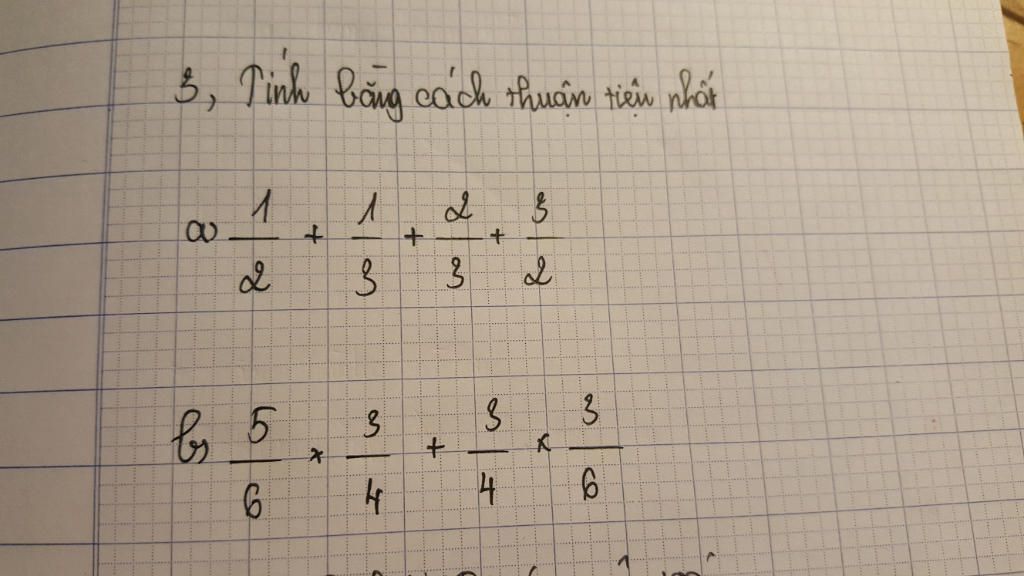 3, Tính bằng cách thuận tiện nhất
a) 1/2 + 1/3 + 2/3 + 3/2
b) 5/6 x 3/4 + 3/4 x 3/6